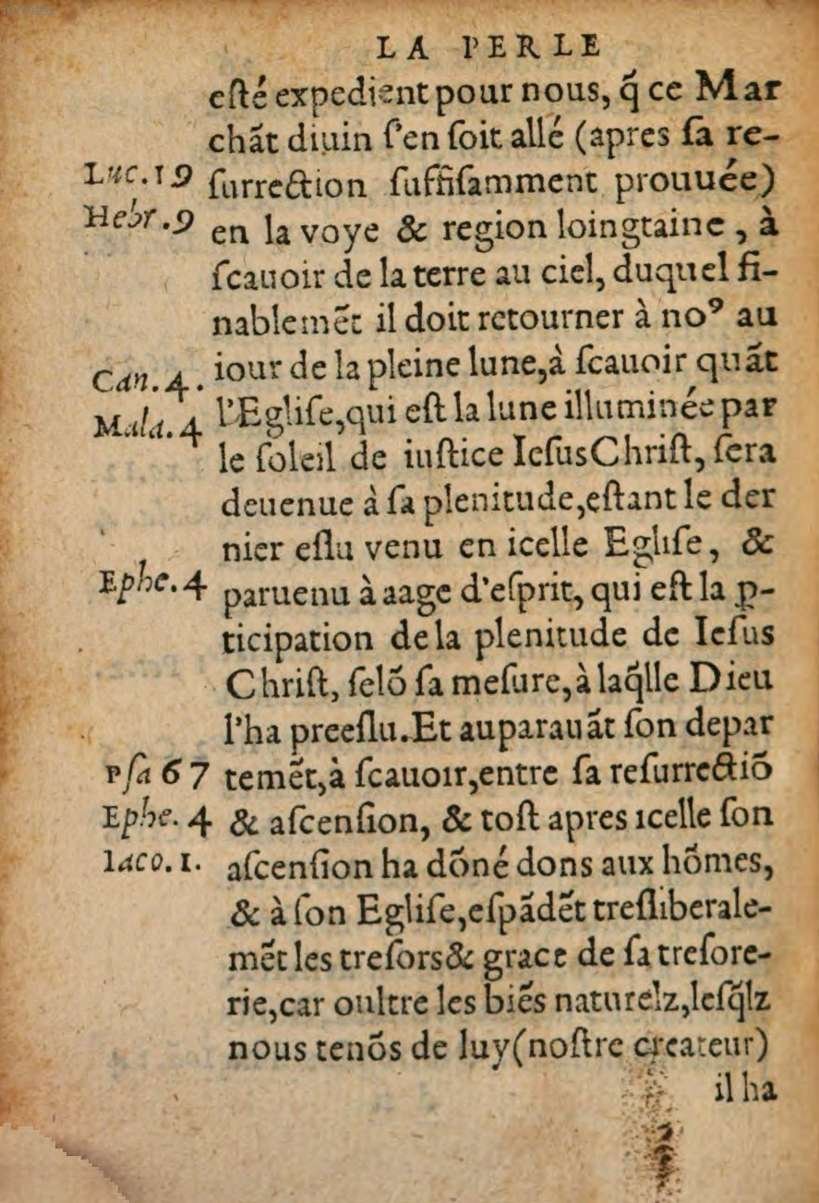 LA PERLE
esté expedient pour nous, q̃ ce Mar
chãt diuin s'en soit allé (apres sa re-
Luc.19 surrection suffisamment prouuée)
Hebr.9 en la voye & region loingtaine, à
scauoir de la terre au ciel, duquel fi-
nablemẽt il doit retourner à noꝰ au
Can.4. iour de la pleine lune,à scauoir quãt
Mala.4 l'Eglise,qui est la lune illuminée par
le soleil de iustice Iesus Christ, sera
deuenue à sa plenitude,estant le der
nier eslu venu en icelle Eglise, &
Ephe.4 paruenu à aage d'esprit, qui est la ꝑ-
ticipation de la plenitude de Iesus
Christ, selõ sa mesure,à laq̃lle Dieu
l'ha preeslu.Et auparauãt son depar
Psa 67 temẽt,à scauoir,entre sa resurrectiõ
Ephe.4 & ascension, & tost apres icelle son
Iaco.1. ascension ha dõné dons aux hõmes,
& à son Eglise,espãdẽt tresliberale-
mẽt les tresors & grace de sa tresore-
rie,car oultre les biẽs naturelz,lesq̃lz
nous tenõs de luy(nostre createur)
il ha